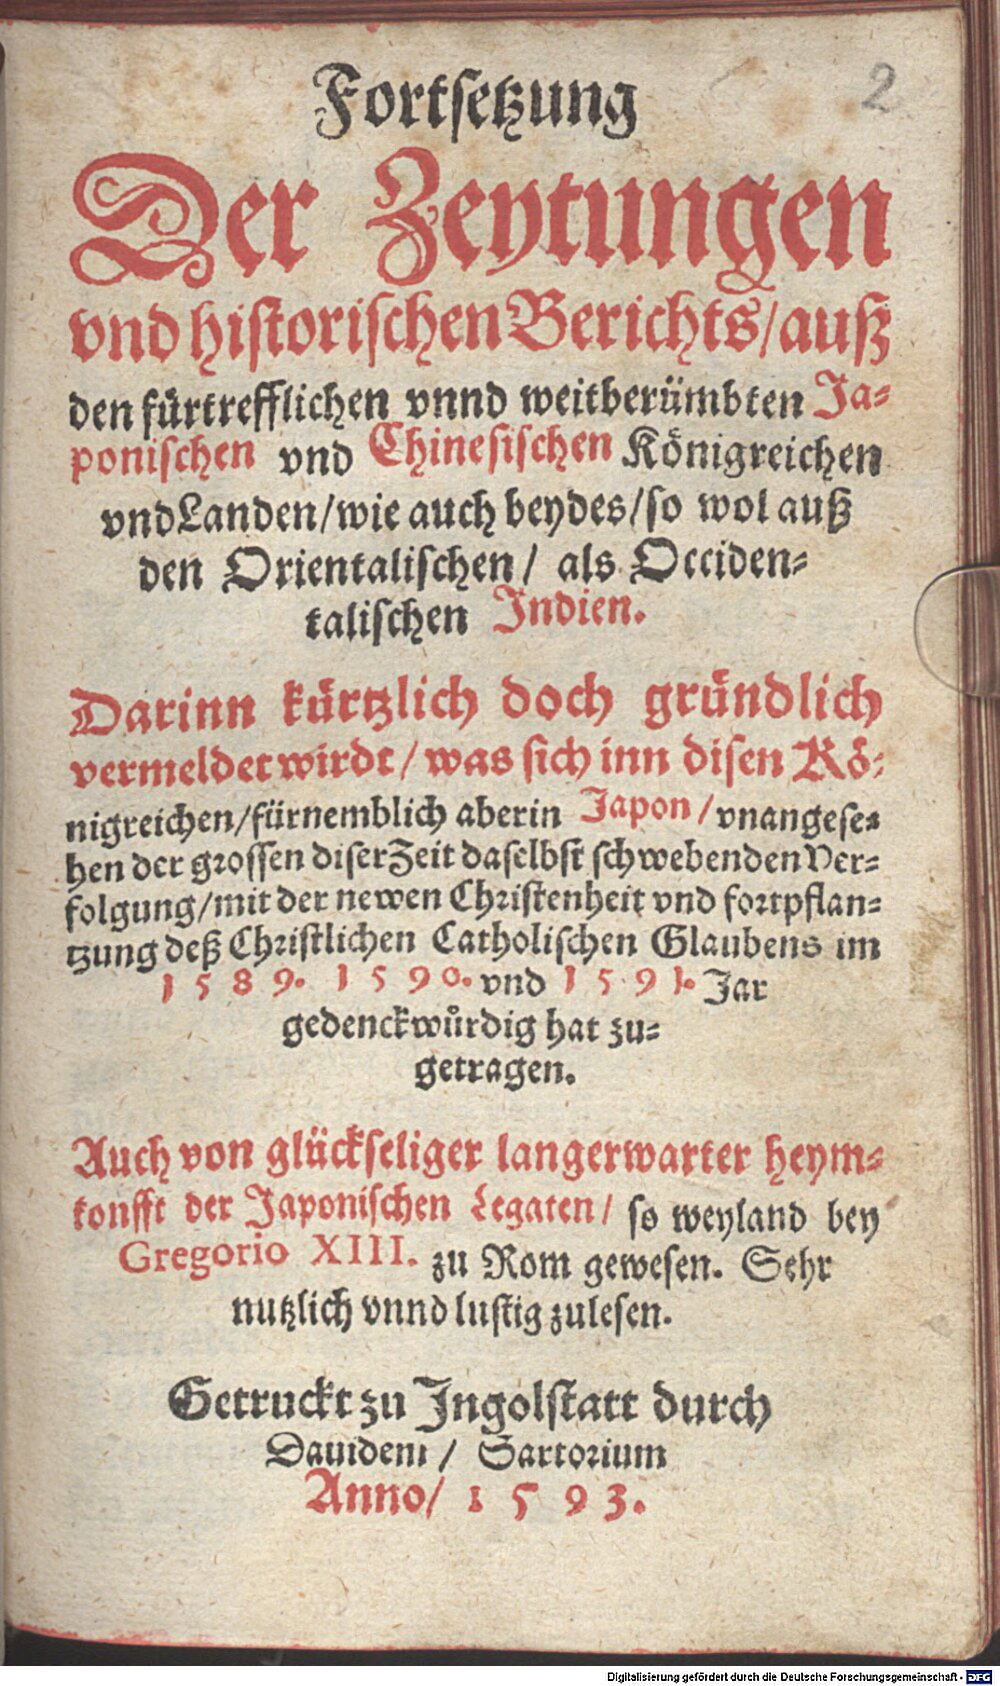 2
Fortsetzung
Der Zeytungen
vnd historischen Berichts/ auß
den fürtrefflichen vnnd weitberümbten Ja-
ponischen vnd Chinesischen Königreichen
vnd Landen/ wie auch beydes/ so wol auß
den Orientalischen/ als Occiden-
talischen Indien.
Darinn kürtzlich doch gründlich
vermeldet wirdt/ was sich inn disen Kö-
nigreichen/ fürnemblich aber in Japon/ vnangese-
hen der grossen diser Zeit daselbst schwebenden Ver-
folgung/ mit der newen Christenheit vnd fortpflan-
tzung deß Christlichen Catholischen Glaubens im
1589. 1590. vnd 1591. Jar
gedenckwürdig hat zu-
getragen.
Auch von glückseliger langerwarter heym-
konfft der Japonischen Legaten/ so weyland bey
Gregorio XIII. zu Rom gewesen. Sehr
nutzlich vnnd lustig zulesen.
Getruckt zu Ingolstatt durch
Dauidem/ Sartorium
Anno/ 1593.
Digitalisierung gefördert durch die Deutsche Forschungsgemeinschaft - DFG